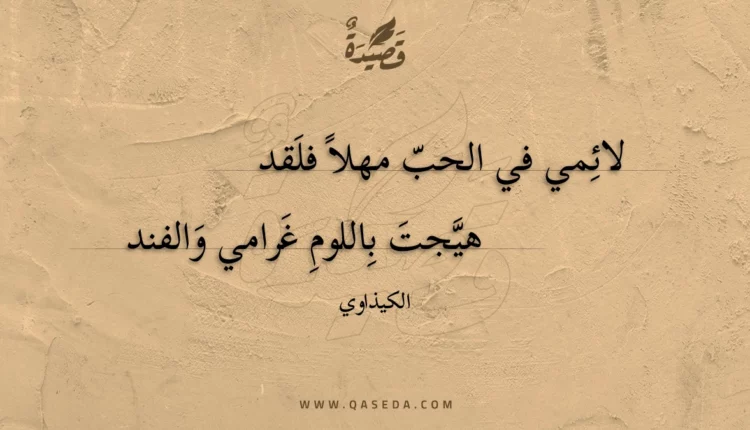 قَصِيدَةٌ
لائِمي في الحبّ مهلاً فلَقد
هيَّجتَ بِاللومِ غَرامي وَالفند
الكيذاوي
WWW.QASEDA.COM